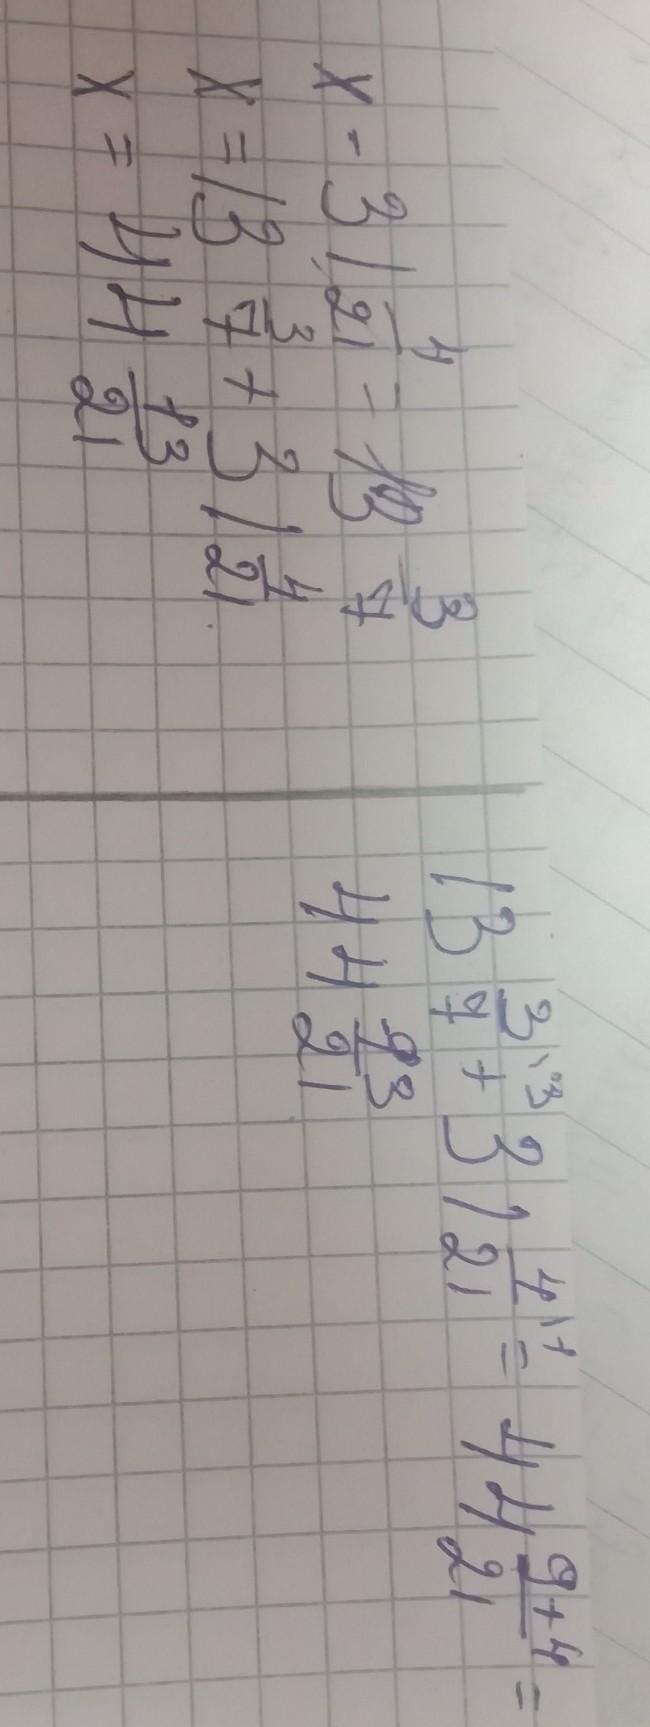 x - 31 4/21 = 13 3/7
x = 13 3/7 + 31 4/21
x = 44 13/21
13 3\3/7 + 31 4\1/21 = 44 9+4/21 =
44 13/21